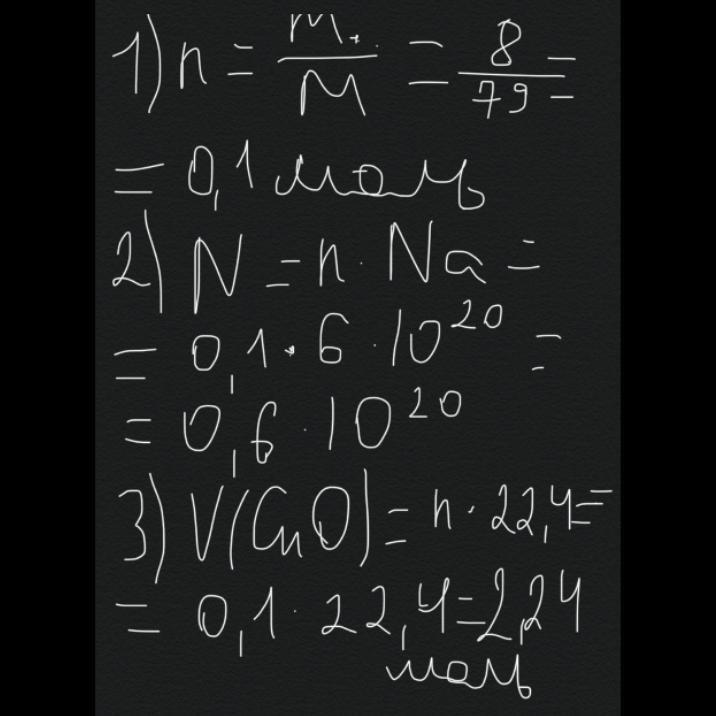 1) n = m/M = 8/79 =
= 0,1 моль
2) N = n · Na =
= 0,1 · 6 · 10²⁰ =
= 0,6 · 10²⁰
3) V(CuO) = n · 22,4 =
= 0,1 · 22,4 = 2,24
моль